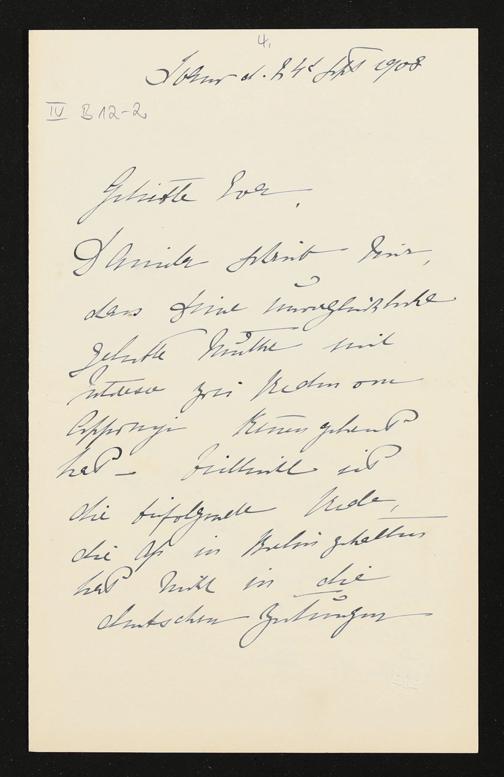 4.
d. 24t Sept 1908
IV B 12-2
Geliebte Eva,
Daniela schrieb mir,
dass Deine unvergleichliche
geliebte Mutter mit
Interesse zwei Reden von
Apponyi kennen gelernt
hat – vielleicht ist
die beifolgende Rede,
die Ap in Berlin gehalten
hat nicht in die
deutschen Zeitungen